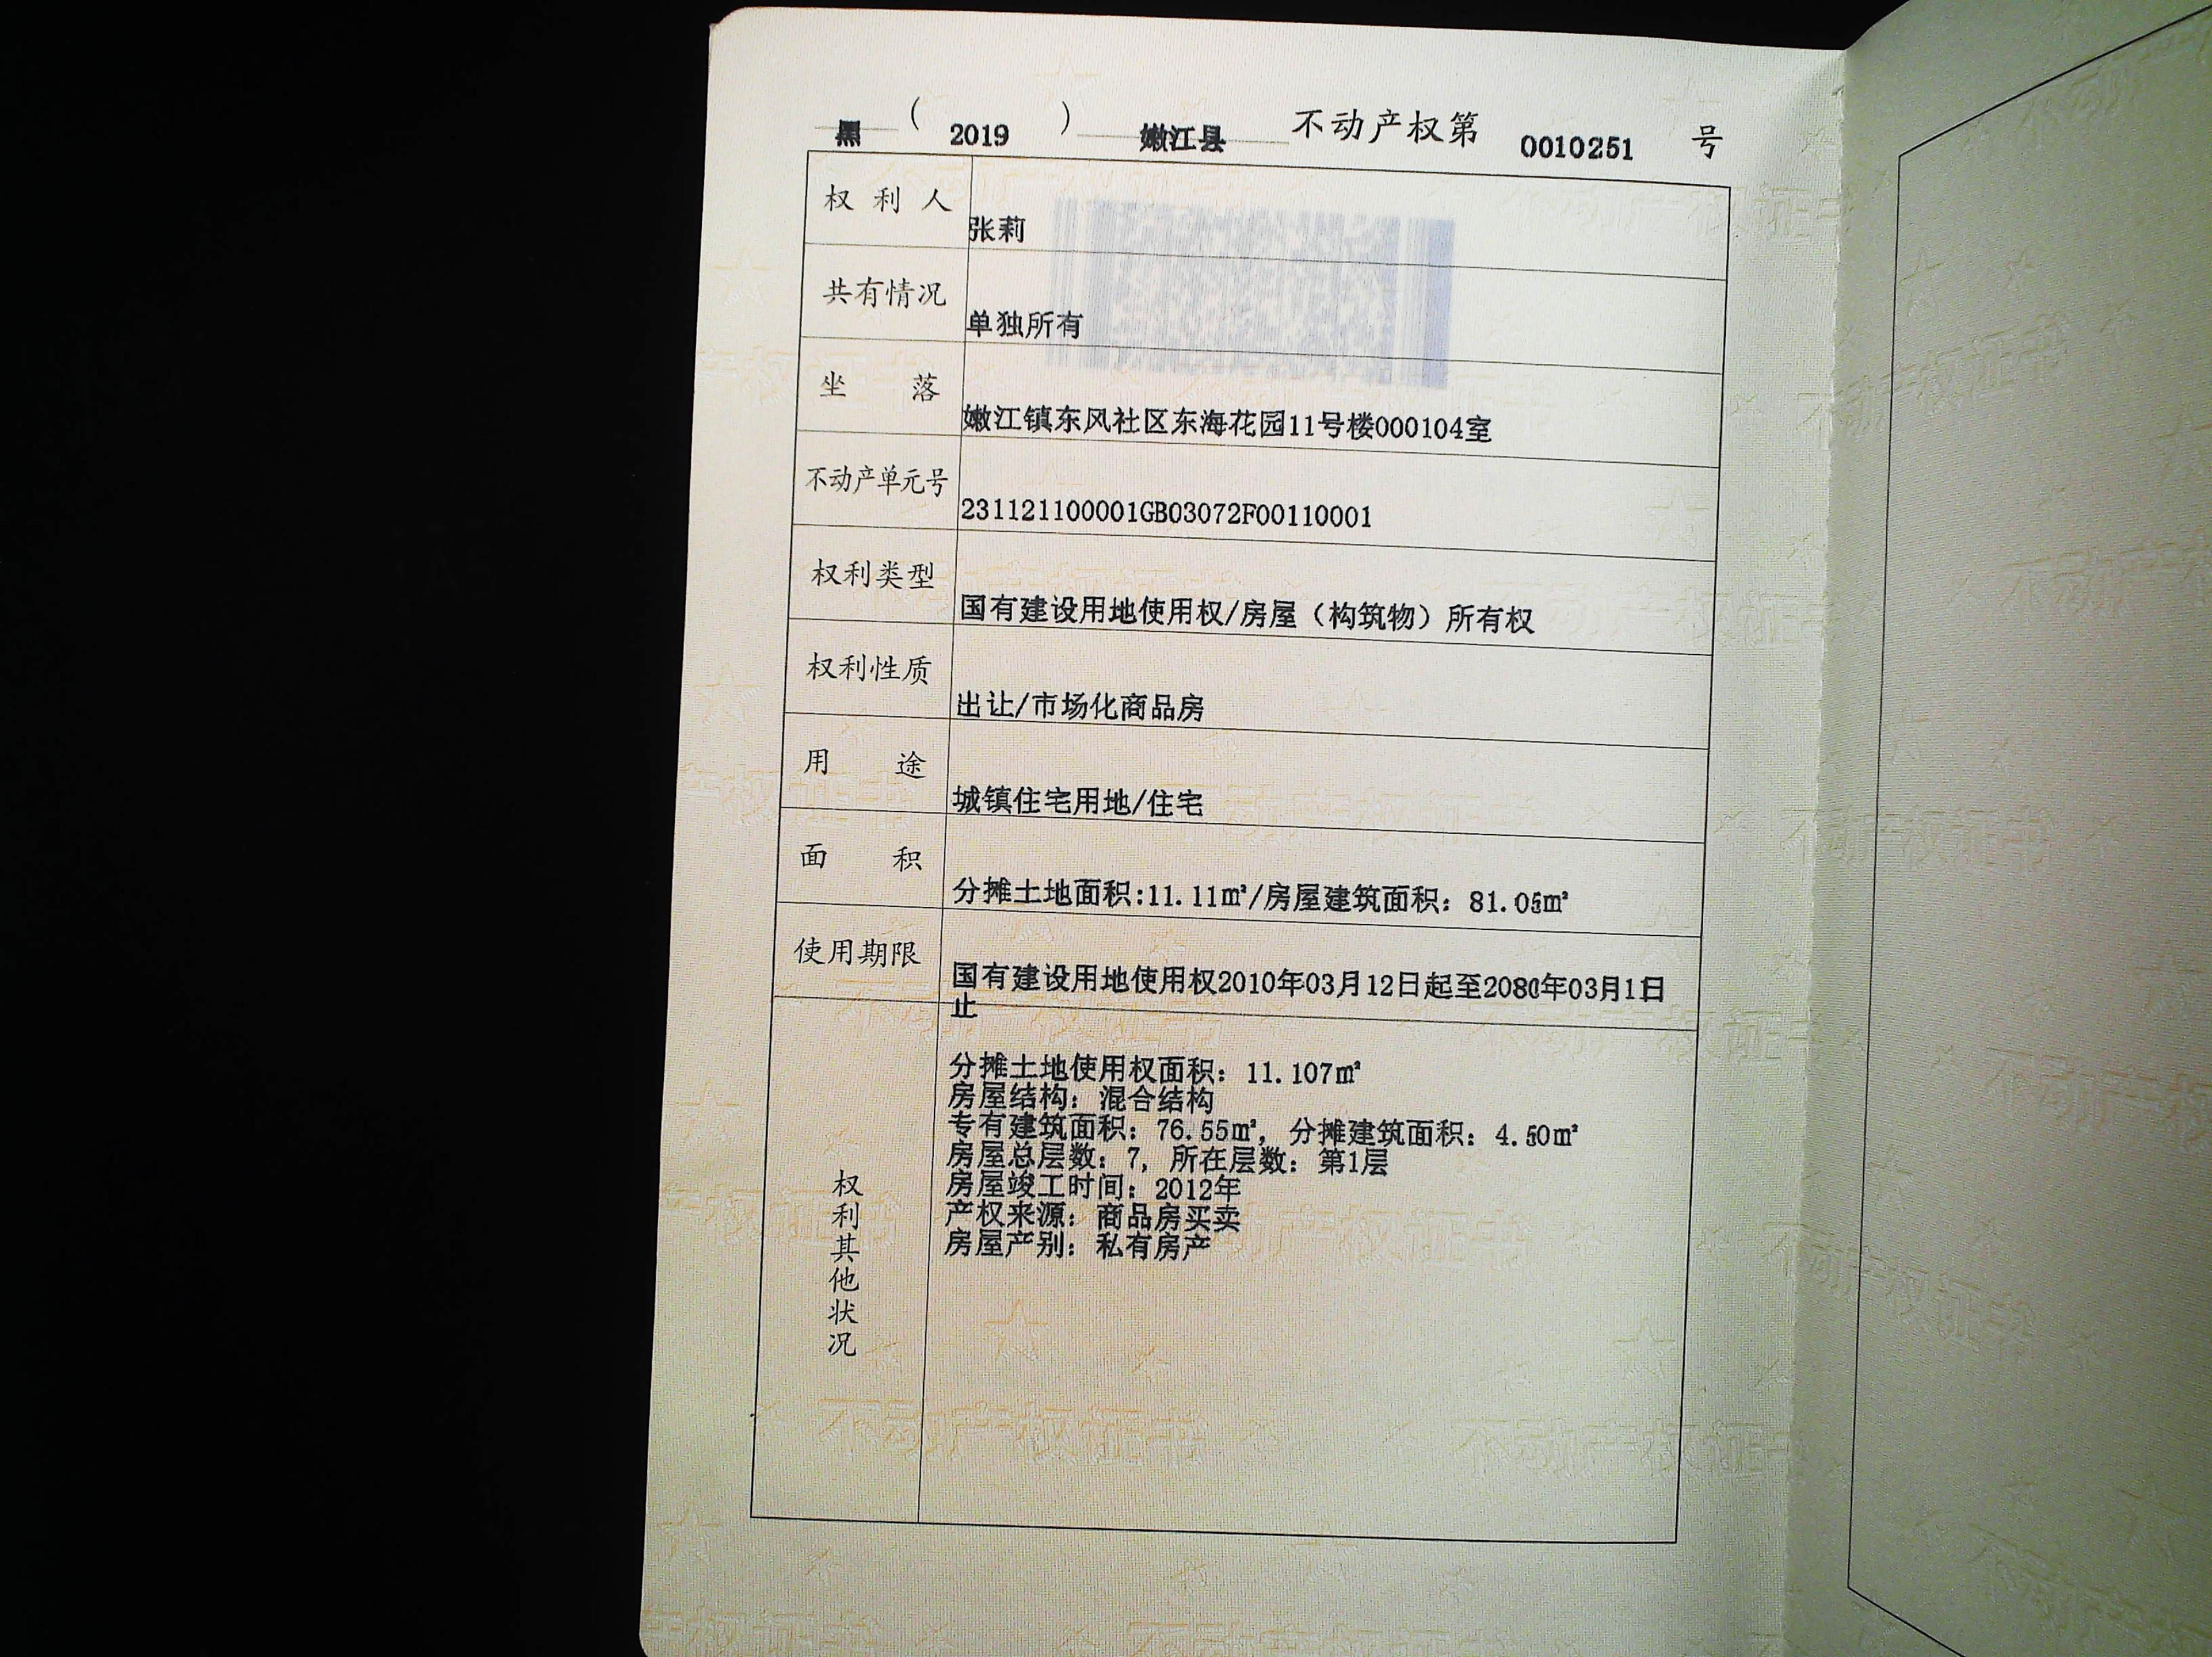 黑 ( 2019 ) 嫩江县 不动产权第 0010251 号
权利人 张莉
共有情况 单独所有
坐落 嫩江镇东风社区东海花园11号楼000104室
不动产单元号 231121100001GB03072F00110001
权利类型 国有建设用地使用权/房屋（构筑物）所有权
权利性质 出让/市场化商品房
用途 城镇住宅用地/住宅
面积 分摊土地面积:11.11㎡/房屋建筑面积：81.05㎡
使用期限 国有建设用地使用权2010年03月12日起至2080年03月11日
止
权利其他状况
分摊土地使用权面积：11.107㎡
房屋结构：混合结构
专有建筑面积：76.55㎡，分摊建筑面积：4.50㎡
房屋总层数：7，所在层数：第1层
房屋竣工时间：2012年
产权来源：商品房买卖
房屋产别：私有房产